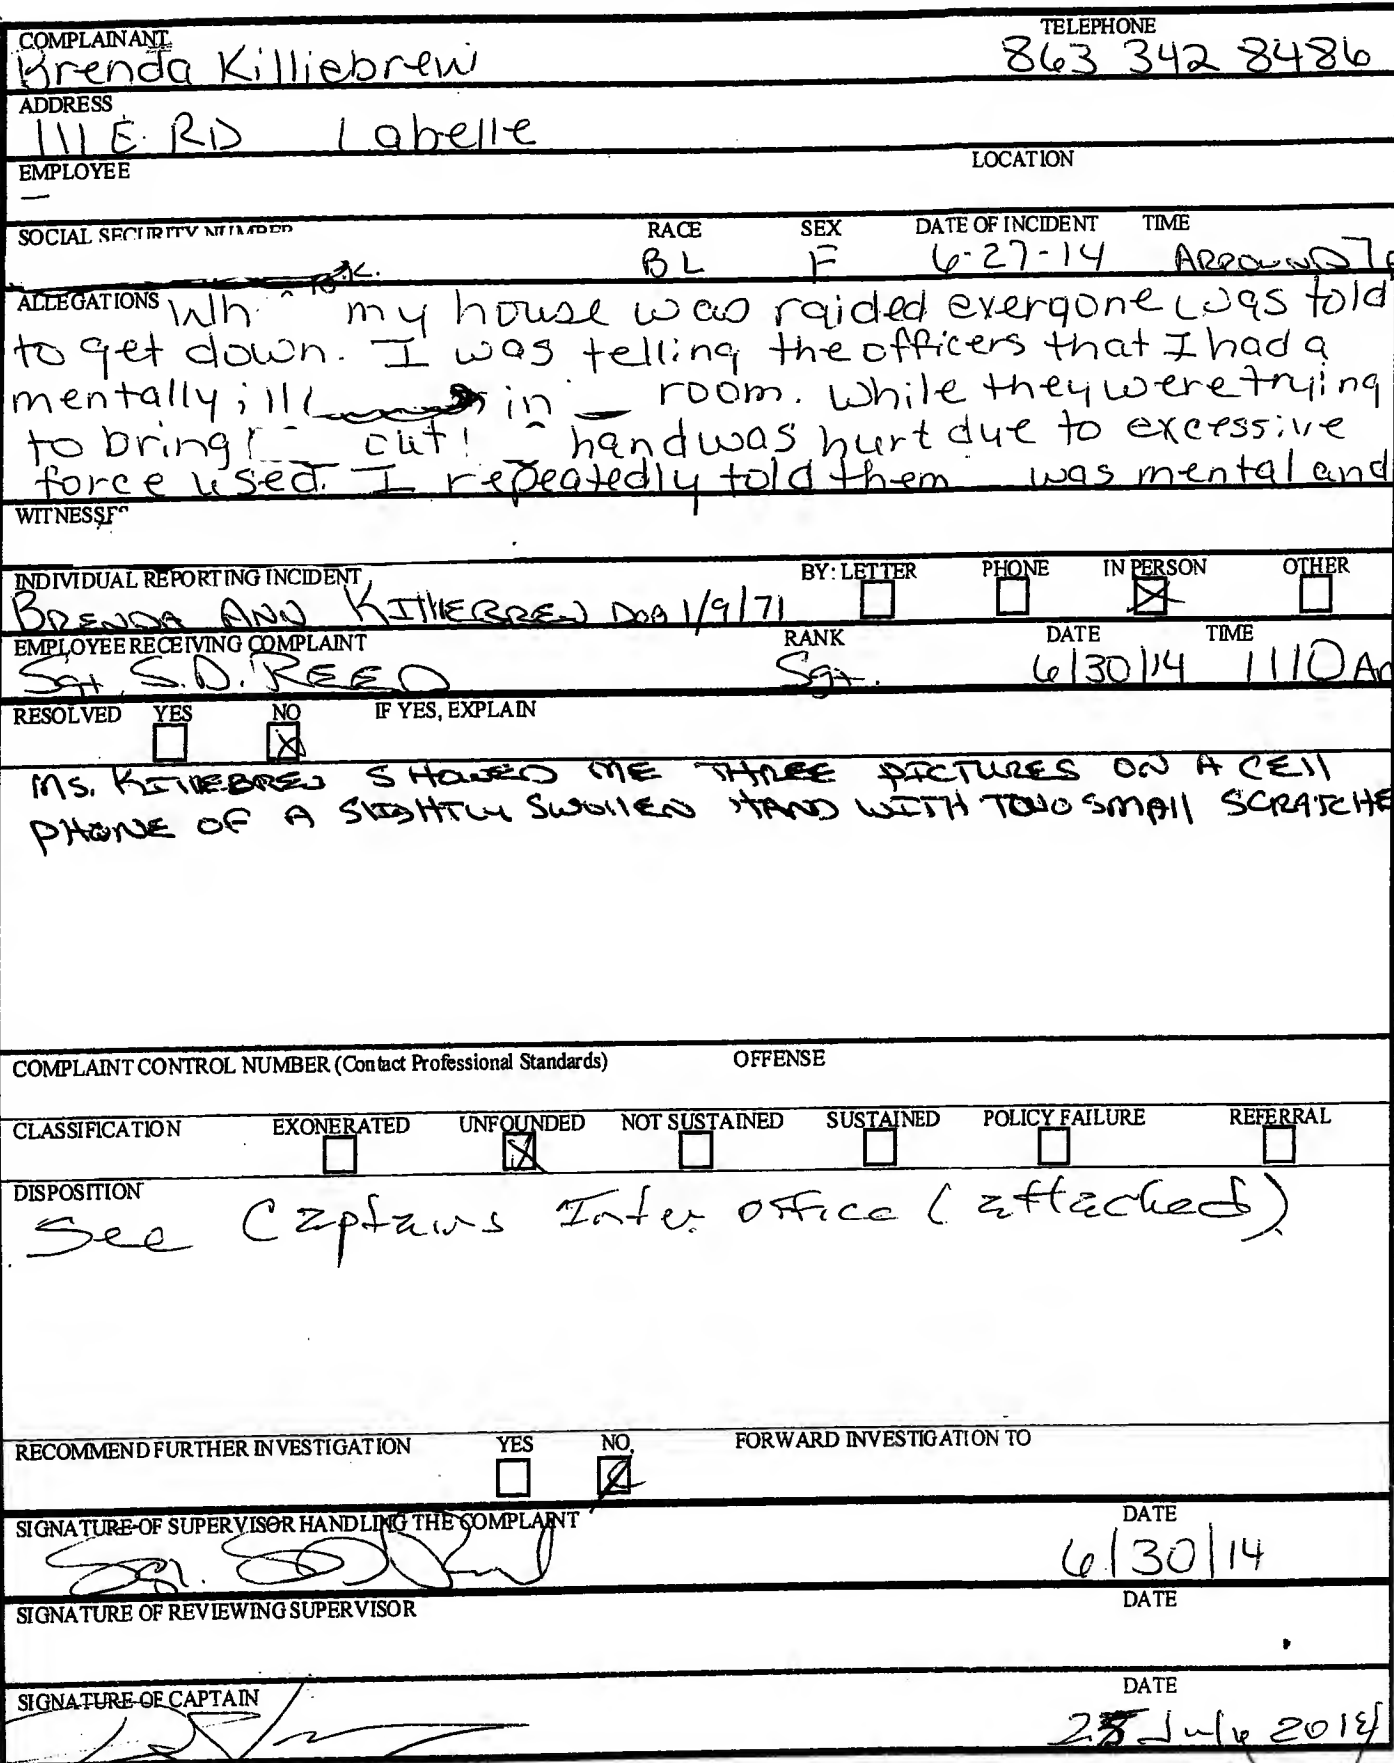 COMPLAINANT TELEPHONE
Brenda Killiebrew 863 342 8486
ADDRESS
111 E. RD Labelle
EMPLOYEE LOCATION
—
SOCIAL SECURITY NUMBER RACE SEX DATE OF INCIDENT TIME
BL F 6-27-14 AROUND
ALLEGATIONS Wh my house was raided everyone was told
to get down. I was telling the officers that I had a
mentally ill in room. While they were trying
to bring out! hand was hurt due to excessive
force used. I repeatedly told them was mental and
WITNESSES
INDIVIDUAL REPORTING INCIDENT BY: LETTER PHONE IN PERSON OTHER
BRENDA ANN KILLIEBREW DOB 1/9/71
EMPLOYEE RECEIVING COMPLAINT RANK DATE TIME
Sgt. S.D. REED Sgt. 6/30/14 1110 Am
RESOLVED YES NO IF YES, EXPLAIN
MS. KILLEBREW SHOWED ME THREE PICTURES ON A CELL
PHONE OF A SLIGHTLY SWOLLEN HAND WITH TWO SMALL SCRATCHE
COMPLAINT CONTROL NUMBER (Contact Professional Standards) OFFENSE
CLASSIFICATION EXONERATED UNFOUNDED NOT SUSTAINED SUSTAINED POLICY FAILURE REFERRAL
DISPOSITION
See Captains Inter office (attached)
RECOMMEND FURTHER INVESTIGATION YES NO FORWARD INVESTIGATION TO
SIGNATURE OF SUPERVISOR HANDLING THE COMPLAINT DATE
Sgt. 6/30/14
SIGNATURE OF REVIEWING SUPERVISOR DATE
SIGNATURE OF CAPTAIN DATE
July 2014